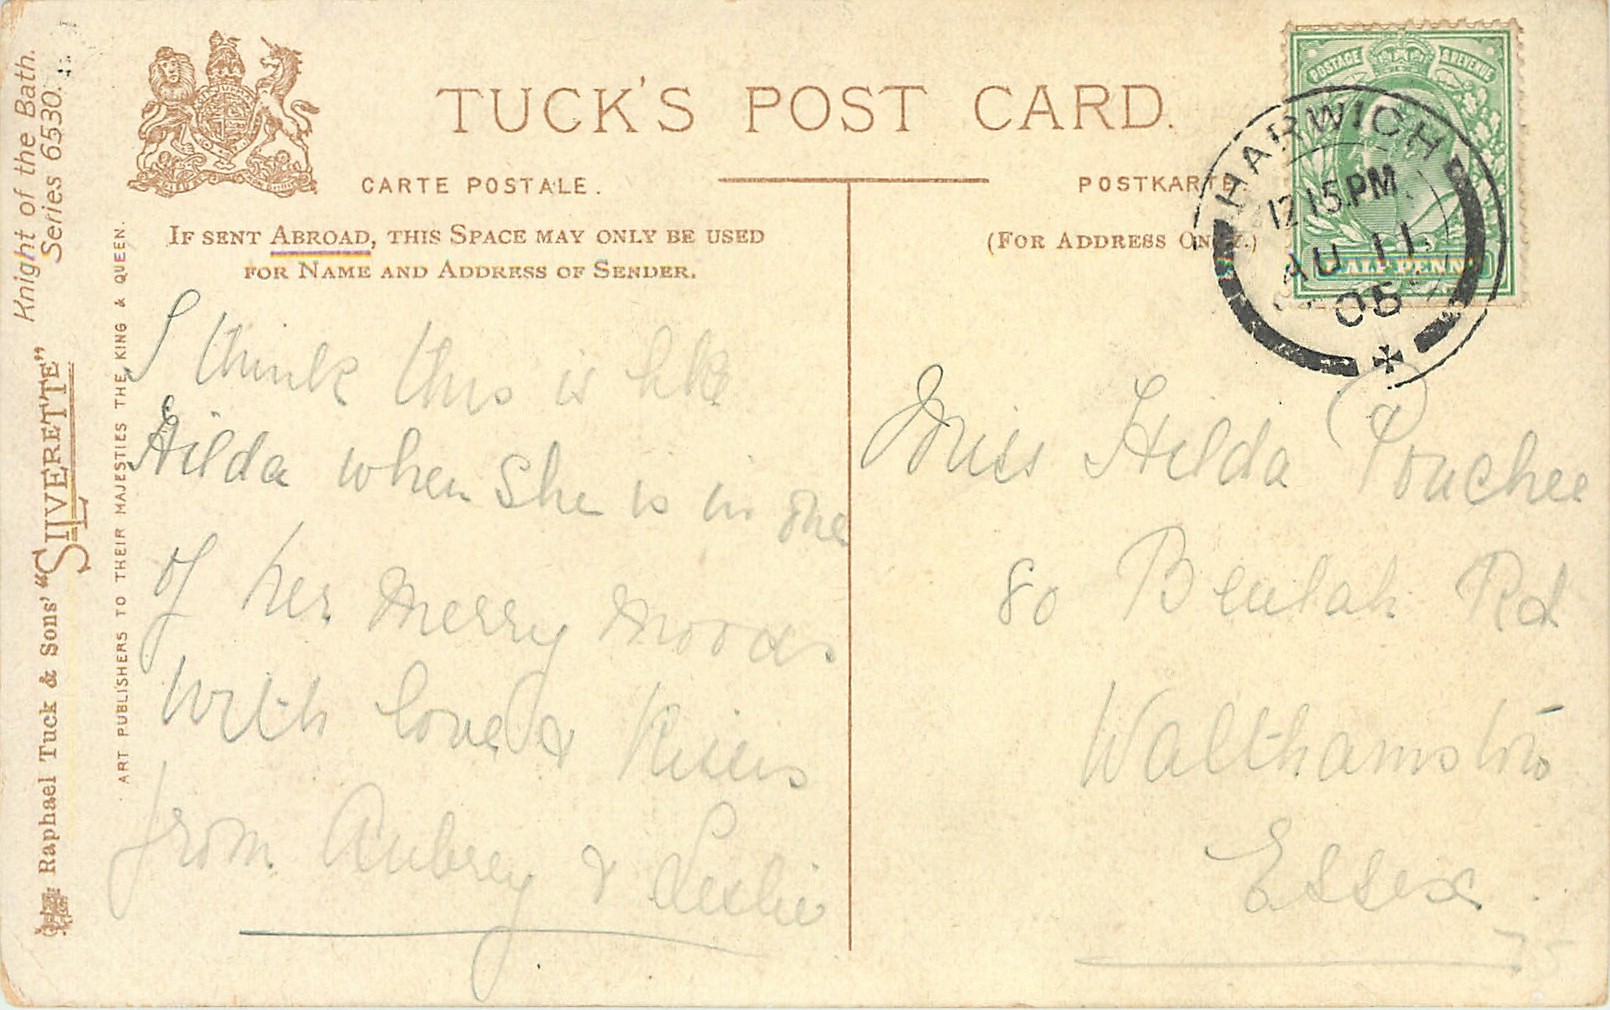 TUCK'S POST CARD.
CARTE POSTALE.
POSTKARTE
IF SENT ABROAD, THIS SPACE MAY ONLY BE USED
FOR NAME AND ADDRESS OF SENDER.
(FOR ADDRESS ONLY.)
POSTAGE & REVENUE
HALF PENNY
HARWICH
12 15 PM
AU 11
05
I think this is like
Hilda when she is in one
of her merry moods
With love & Kisses
from Aubrey & Leslie
Miss Hilda Pouchee
80 Beulah Rd
Walthamstow
Essex.
Knight of the Bath.
Series 6530.
Raphael Tuck & Sons' "SILVERETTE"
ART PUBLISHERS TO THEIR MAJESTIES THE KING & QUEEN.